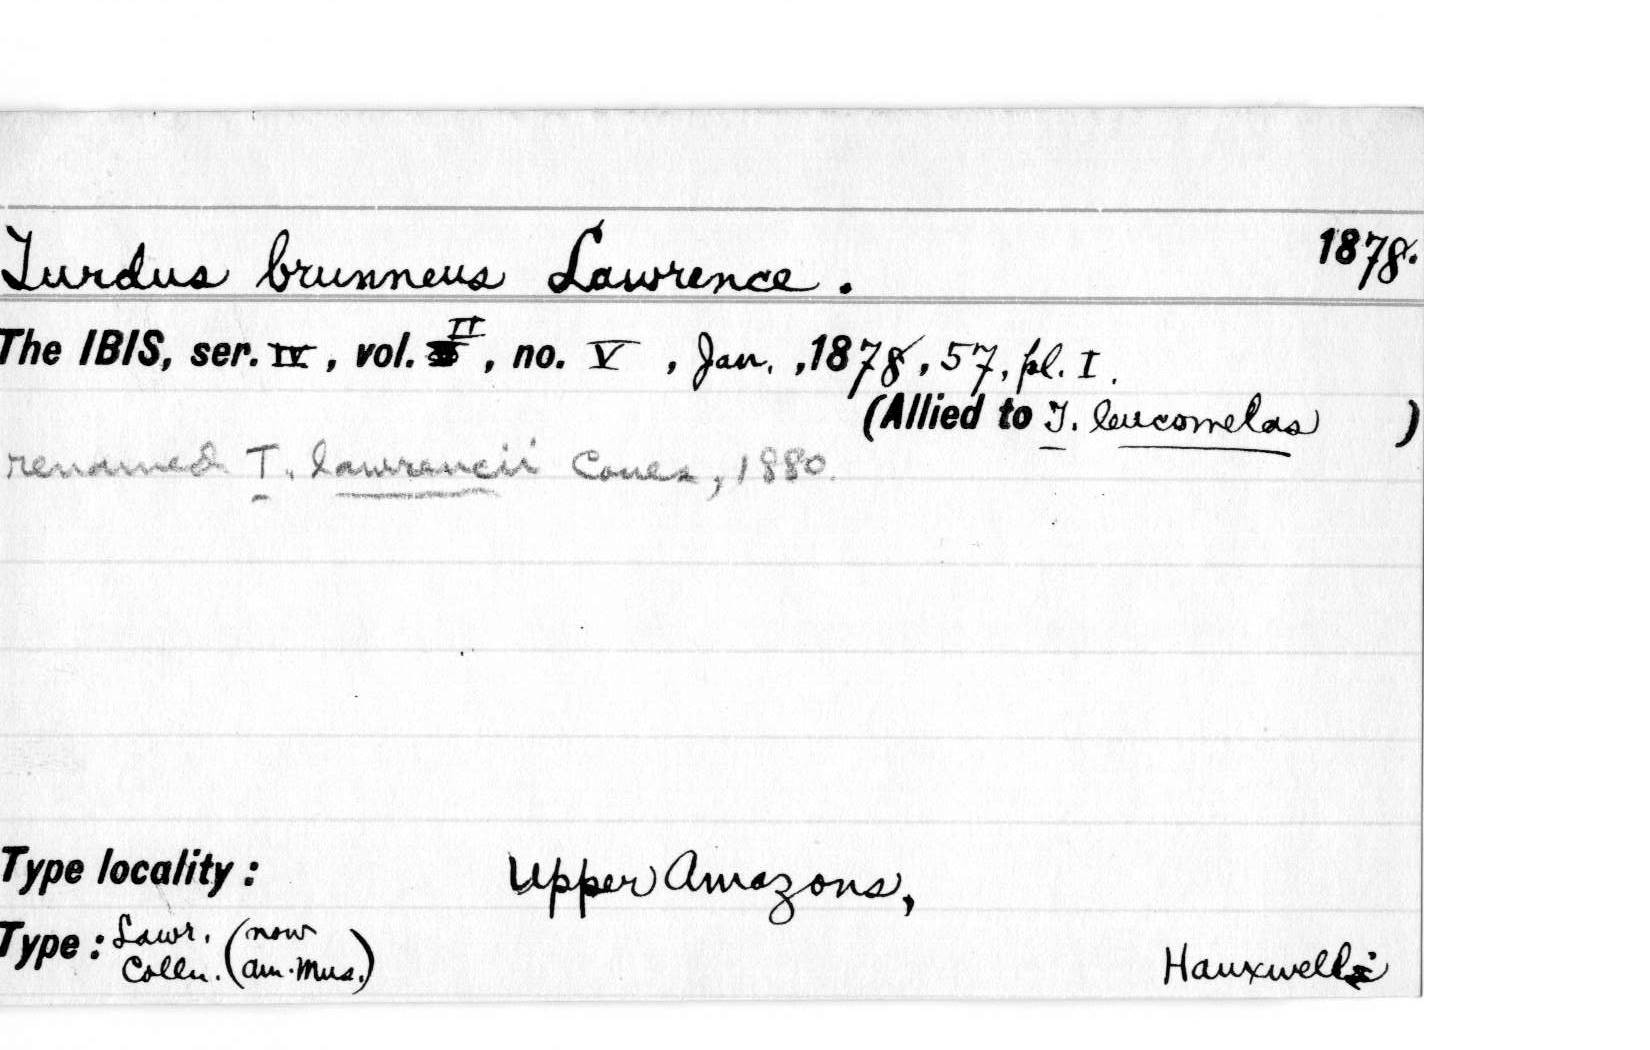 Turdus brunneus Lawrence. 1878.
The IBIS, ser. IV, vol. II, no. V, Jan., 1878, 57, pl. I.
(Allied to T. leucomelas )
renamed T. lawrencii Coues, 1880.
Type locality: Upper Amazons,
Type: Lawr. Colln. (now Am. Mus.)
Hauxwell